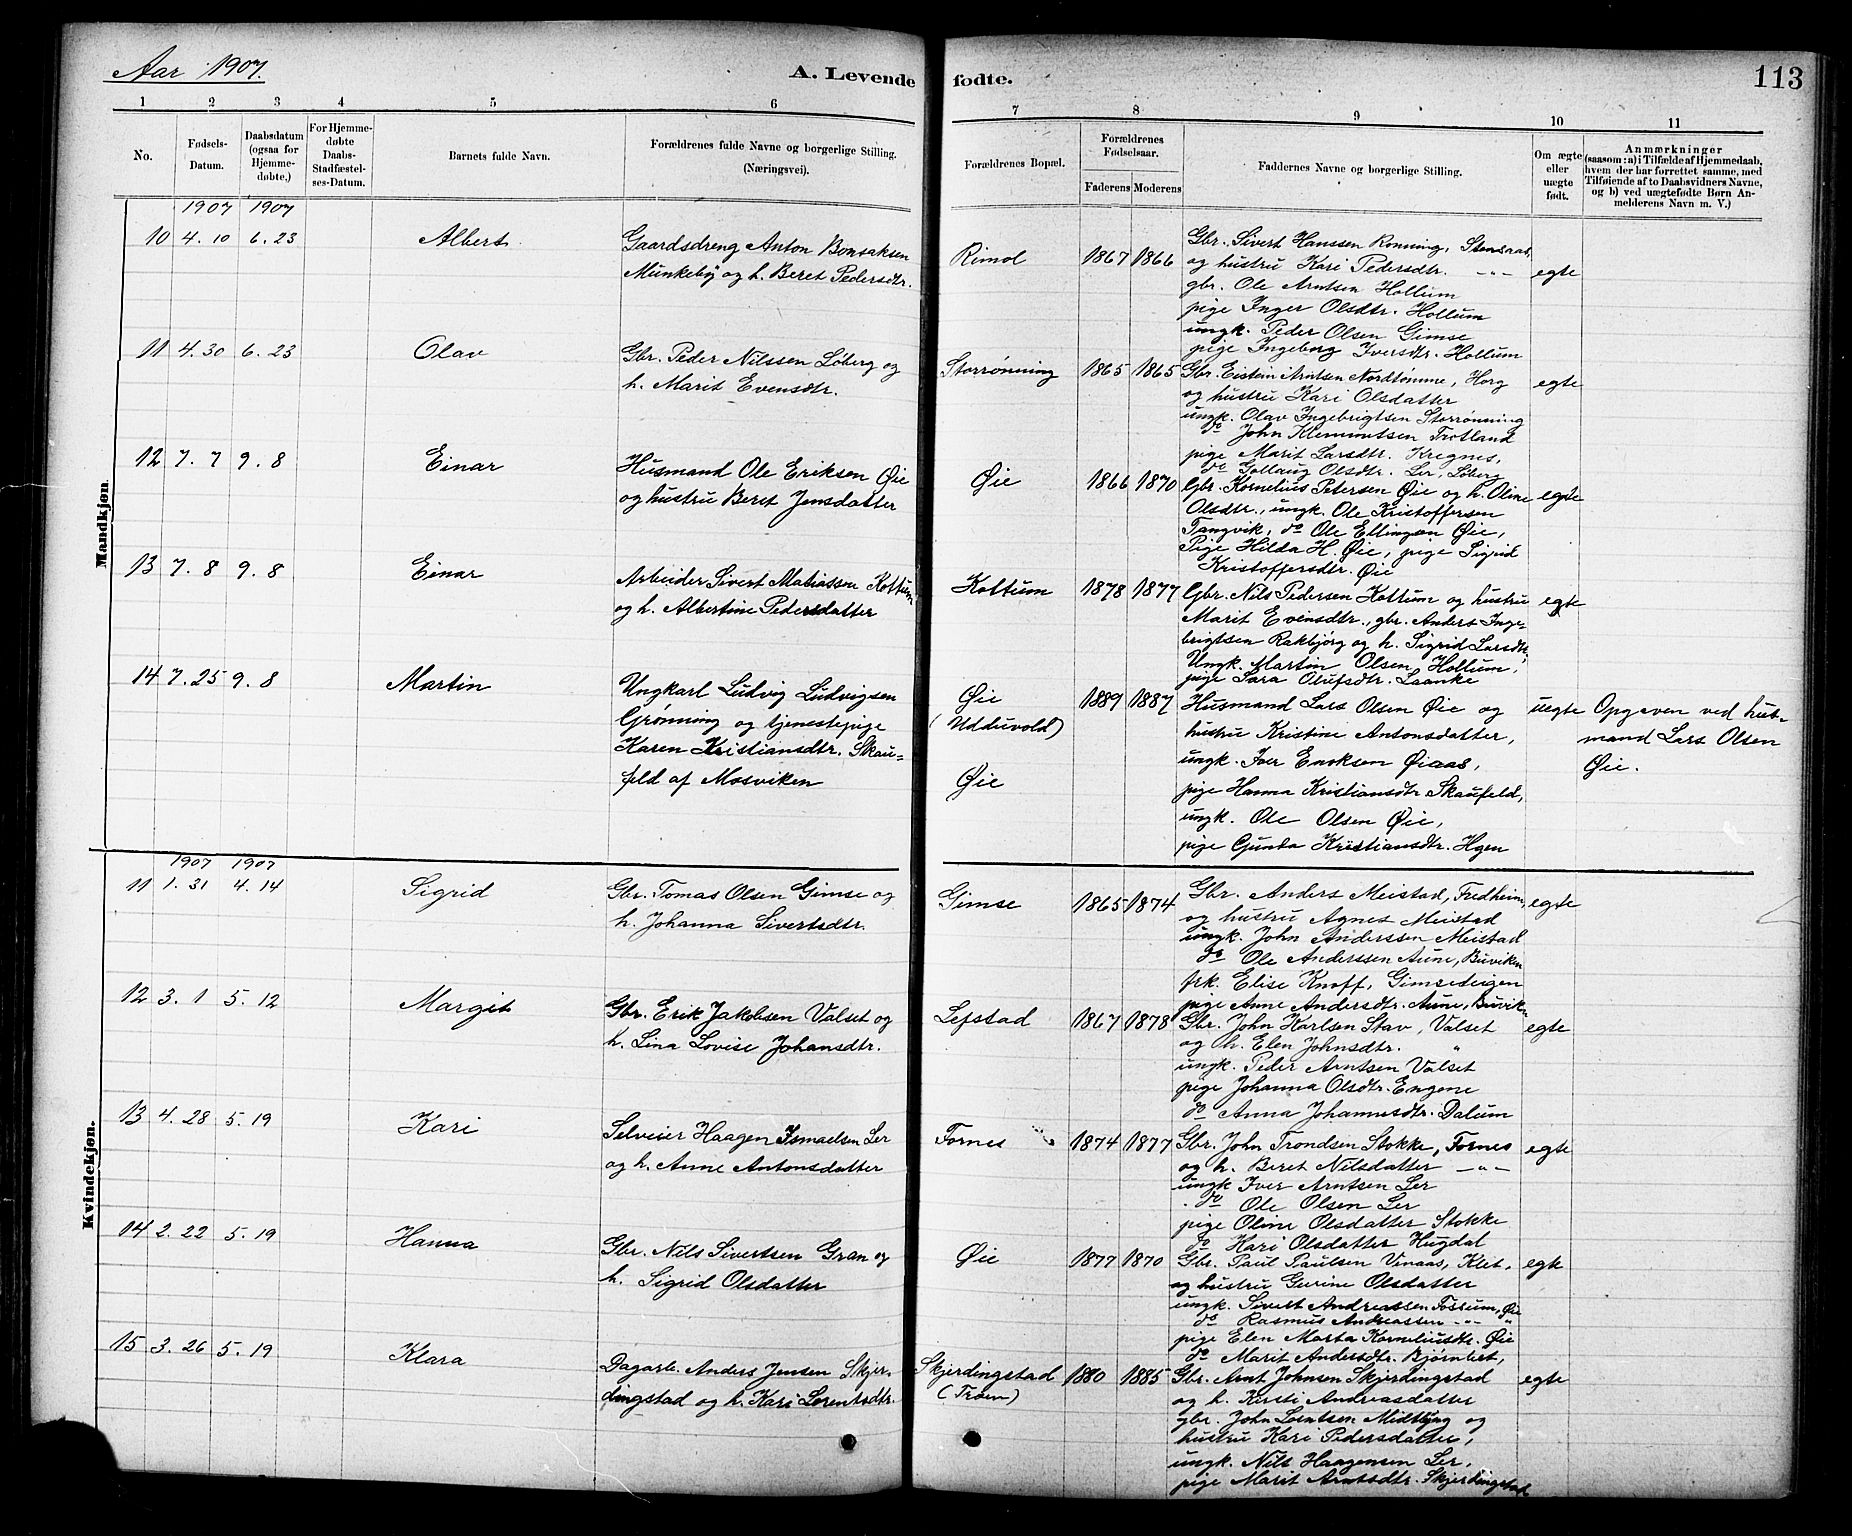 Aar 1907.
A. Levende fødte.
113
1 2 3 4 5 6 7 8 9 10 11
No.
Fødsels-
Datum.
Daabsdatum
(ogsaa for
Hjemme-
døbte,)
For Hjemme-
døbte
Daabs-
Stadfæstel-
ses-Datum.
Barnets fulde Navn.
Forældrenes fulde Navne og borgerlige Stilling.
(Næringsvei).
Forældrenes Bopæl.
Forældrenes
Fødselsaar.
Faderens Moderens
Faddernes Navne og borgerlige Stilling.
Om ægte
eller
uægte
født.
Anmærkninger
(saasom: a) i Tilfælde af Hjemmedaab,
hvem der har forrettet samme, med
Tilføiende af to Daabsvidners Navne,
og b) ved uægtefødte Børn An-
melderens Navn m. V.)
Mandkjøn.
1907 1907
10 4. 10 6. 23 Albert
Gaardsdreng Anton Bonsaksen
Munkeby og h. Beret Pedersdtr.
Rimol 1867 1866
Gbr. Sivert Hanssen Rønning, Stensaas,
og hustru Kari Pedersdtr. -"-
gbr. Ole Arntsen Hollum
pige Inger Olsdtr. Hollum
ungk. Peder Olsen Gimse
pige Ingeborg Iversdtr. Hollum
egte
11 4. 30 6. 23 Olav
Gbr. Peder Nilssen Løberg og
h. Marit Evensdtr.
Storrønning 1865 1865
Gbr. Eistein Arntsen Nordtømme, Horg
og hustru Kari Olsdatter
ungk. Olav Ingebrigtsen Storrønning
do John Klemmetsen Trotland
pige Marit Larsdtr. Kregnes,
do Gollaug Olsdtr. Ler, Løberg
egte
12 7. 7 9. 8 Einar
Husmand Ole Eriksen Øie
og hustru Beret Jensdatter
Øie 1866 1870
Gbr. Kornelius Petersen Øie og h. Oline
Olsdtr., ungk. Ole Kristoffersen
Tangvik, do Ole Ellingsen Øie,
Pige Hilda H. Øie, pige Sigrid
Kristoffersdtr. Øie
egte
13 7. 8 9. 8 Einar
Arbeider Sivert Matiassen Kottum
og h. Albertine Pedersdatter
Kottum 1878 1877
Gbr. Nils Pedersen Kottum og hustru
Marit Evensdtr., gbr. Anders Inge-
brigtsen Rakbjørg og h. Sigrid Larsdtr,
Ungk. Martin Olsen Hollum,
pige Sara Olufsdtr. Laanke
egte
14 7. 25 9. 8 Martin
Ungkarl Ludvig Ludvigsen
Grønning og tjenestepige
Karen Kristiansdtr. Skau-
feld af Mosviken
Øie
(Udduvold)
Øie
1889 1887
Husmand Lars Olsen Øie og
hustru Kristine Antonsdatter,
ungk. Iver Enoksen Øiaas,
pige Hanna Kristiansdtr Skaufeld,
ungk. Ole Olsen Øie,
pige Gunda Kristiansdtr. Hgen
uegte
Opgaven ved hus-
mand Lars Olsen
Øie.
Kvindekjøn.
1907 1907
11 1. 31 4. 14 Sigrid
Gbr. Tomas Olsen Gimse og
h. Johanna Sivertsdtr.
Gimse 1865 1874
Gbr. Anders Meistad, Fredheim,
og hustru Agnes Meistad
ungk. John Anderssen Meistad
do Ole Anderssen Aune, Buviken
frk. Elise Knoff, Gimsedeigen
pige Anne Andersdtr. Aune, Buvik-
egte
12 3. 1 5. 12 Margit
Gbr. Erik Jakobsen Valset og
h. Lina Lovise Johansdtr.
Lefstad 1867 1878
Gbr. John Karlsen Stav, Valset
og h. Elen Johnsdtr. "
ungk. Peder Arntsen Valset
pige Johanna Olsdtr. Engene
do Anna Johannesdtr. Dalum
egte
13 4. 28 5. 19 Kari
Selveier Haagen Ismaelsen Ler
og h. Anne Antonsdatter
Fornes 1874 1877
Gbr. John Trondsen Stokke, Fornes
og h. Beret Nilsdatter -"-
ungk Iver Arntsen Ler
do Ole Olsen Ler
pige Oline Olsdatter Stokke
do Kari Olsdatter Hugdal
egte
14 2. 22 5. 19 Hanna
Gbr. Nils Sivertsen Gran og
h. Sigrid Olsdatter
Øie 1877 1870
Gbr. Paul Paulsen Vinaas, Klet.
og hustru Gurine Olsdatter
ungk. Sivert Andreassen Fossum, Øie
do Rasmus Andreassen -"- "
pige Elen Marta Korneliusdtr. Øie
do Marit Andersdtr. Bjørnbet,
egte
15 3. 26 5. 19 Klara
Dagarb. Anders Jensen Skjer-
dingstad og h. Kari Lorentsdtr.
Skjerdingstad
(Trøen)
1880 1885
Gbr. Arnt Johnsen Skjerdingstad
og h. Kirsti Andreasdatter
gbr. John Lorntsen Midtlyng og
hustru Kari Pedersdatter,
ungk. Nils Haagensen Ler,
pige Marit Arntsdtr. Skjerdingstad
egte